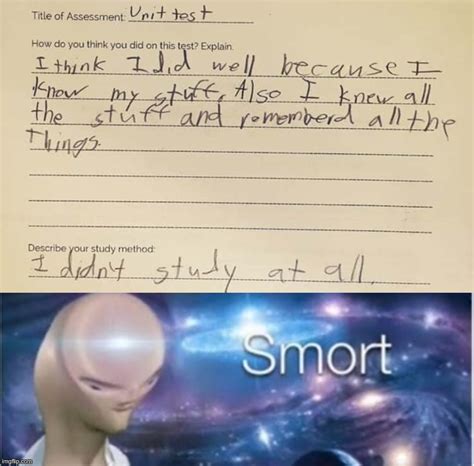 Title of Assessment: Unit test
How do you think you did on this test? Explain.
I think I did well because I
know my stuff, Also I knew all
the stuff and rememberd all the
Things.
Describe your study method:
I didn't study at all.
Smort
imgflip.com